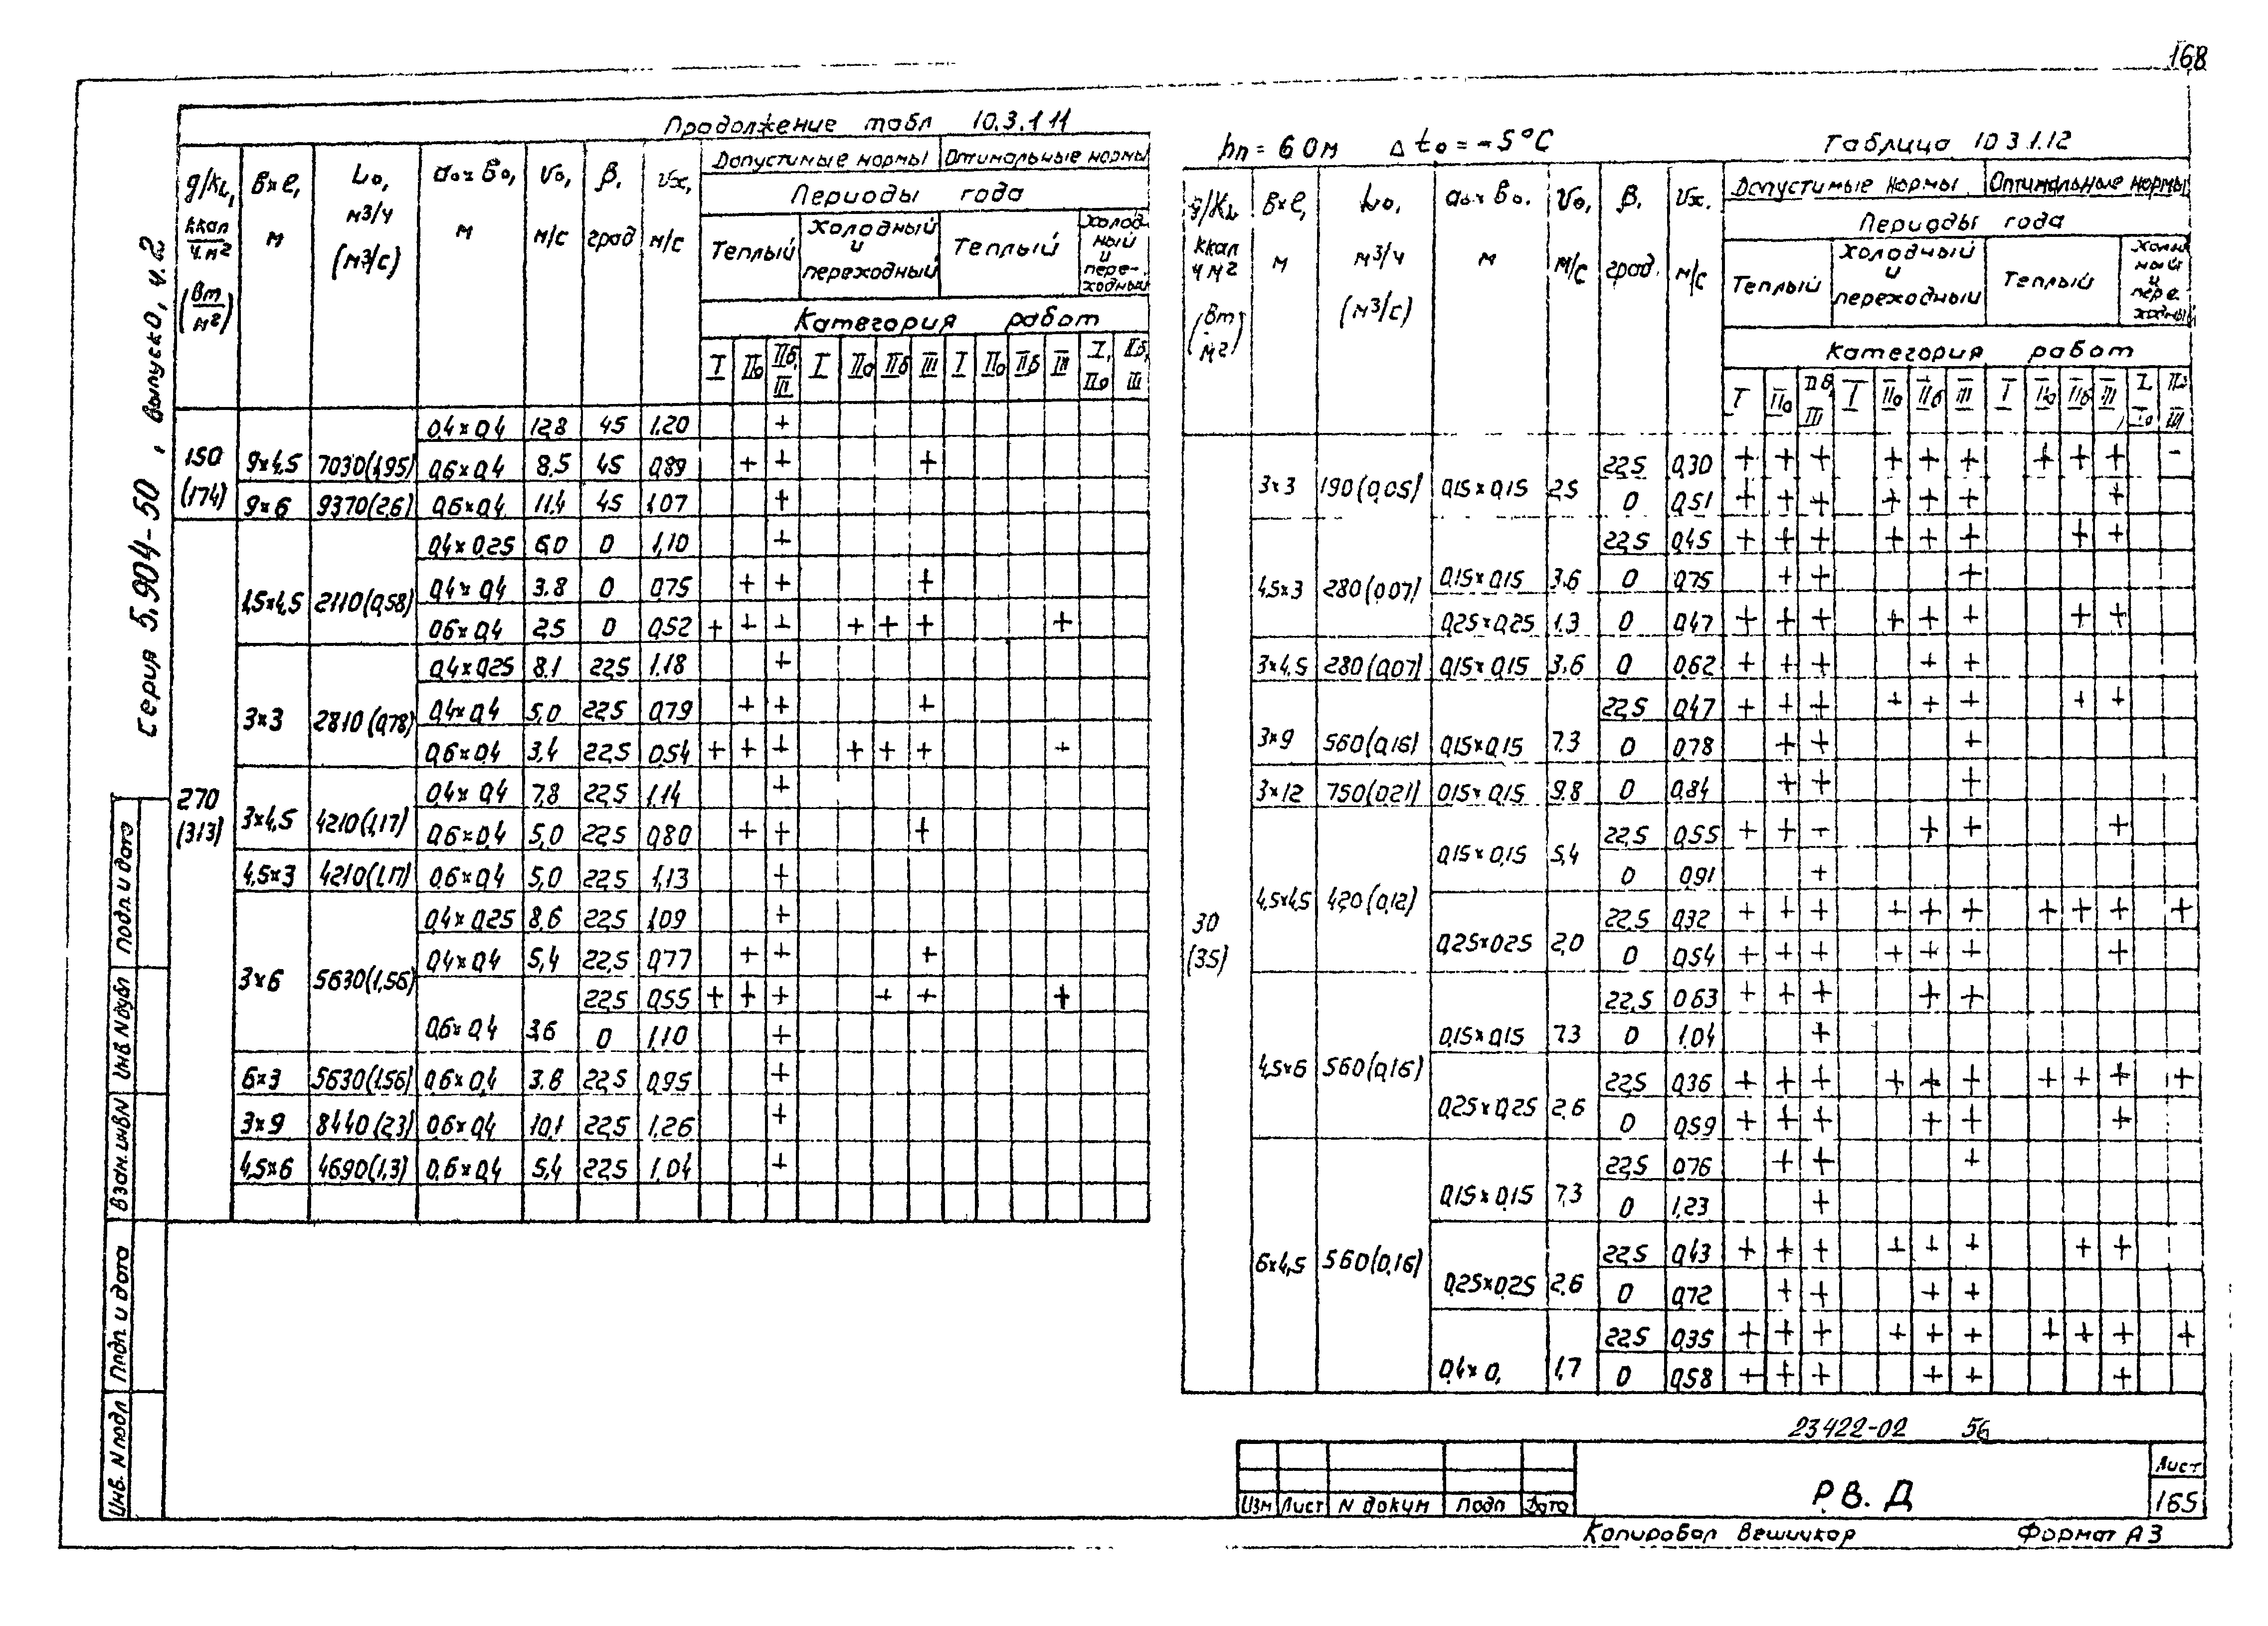 168
Серия 5.904-50, выпуск 0, ч.2
Продолжение табл 10.3.1 11
g/kL, ккал/ч.м² (вт/м²) | в×ℓ, м | Lо, м3/ч (м3/с) | ао×во, м | Vо, м/с | β, град | Vх, м/с | Допустимые нормы | Оптимальные нормы
Периоды года
Теплый | Холодный и переходный | Теплый | Холодный и пере-ходный
Категория работ
I | IIа | IIб, III | I | IIа | IIб | III | I | IIа | IIб | III | I, IIа | IIб, III
150 (174) | 9×4,5 | 7030(1,95) | 0,4×0,4 | 12,8 | 45 | 1.20 | +
0,6×0,4 | 8.5 | 45 | 0,89 | + + +
9×6 | 9370(2,6) | 0,6×0,4 | 11.4 | 45 | 1,07 | +
270 (313) | 1,5×4,5 | 2110(0,58) | 0,4×0,25 | 6,0 | 0 | 1,10 | +
0,4×0,4 | 3.8 | 0 | 0,75 | + + +
0,6×0,4 | 2,5 | 0 | 0,52 | + + + + + + +
3×3 | 2810(0,78) | 0,4×0,25 | 8.1 | 22,5 | 1.18 | +
0,4×0,4 | 5,0 | 22,5 | 0,79 | + + +
0,6×0,4 | 3,4 | 22,5 | 0,54 | + + + + + + +
3×4,5 | 4210(1,17) | 0,4×0,4 | 7.8 | 22,5 | 1.14 | +
0,6×0,4 | 5,0 | 22,5 | 0,80 | + + +
4,5×3 | 4210(1,17) | 0,6×0,4 | 5,0 | 22,5 | 1,13 | +
3×6 | 5630(1,56) | 0,4×0,25 | 8.6 | 22,5 | 1,09 | +
0,4×0,4 | 5,4 | 22,5 | 0,77 | + + +
0,6×0,4 | 3,6 | 22,5 | 0,55 | + + + + + +
0 | 1,10 | +
6×3 | 5630(1,56) | 0,6×0,4 | 3.6 | 22,5 | 0,95 | +
3×9 | 8440(2,3) | 0,6×0,4 | 10,1 | 22,5 | 1,26 | +
4,5×6 | 4690(1,3) | 0,6×0,4 | 5,4 | 22,5 | 1,04 | +
hп = 6 0м Δtо = -5°C Таблица 10 3.1.12
g/kL ккал ч м² (Вт м²) | в×ℓ, м | Lо, м3/ч (м3/с) | ао×во, м | Vо, м/с | β, град. | Vх, м/с | Допустимые нормы | Оптимальные нормы
Периоды года
Теплый | Холодный и переходный | Теплый | Холодный и пере-ходный
Категория работ
I | IIа | IIб, III | I | IIа | IIб | III | I | IIа | IIб | III | I, IIа | IIб III
30 (35) | 3×3 | 190(0,05) | 0,15×0,15 | 2,5 | 22,5 | 0,30 | + + + + + + + + + -
0 | 0,51 | + + + + + + +
4,5×3 | 280(0,07) | 0,15×0,15 | 3.6 | 22,5 | 0,45 | + + + + + + + +
0 | 0,75 | + + +
0,25×0,25 | 1.3 | 0 | 0,47 | + + + + + + + +
3×4,5 | 280(0,07) | 0,15×0,15 | 3.6 | 0 | 0,62 | + + + + +
3×9 | 560(0,16) | 0,15×0,15 | 7.3 | 22,5 | 0,47 | + + + + + + + +
0 | 0,78 | + + +
3×12 | 750(0,21) | 0,15×0,15 | 9.8 | 0 | 0,84 | + + +
4,5×4,5 | 420(0,12) | 0,15×0,15 | 5,4 | 22,5 | 0,55 | + + + + + +
0 | 0,91 | +
0,25×0,25 | 2,0 | 22,5 | 0,32 | + + + + + + + + + +
0 | 0,54 | + + + + + + +
4,5×6 | 560(0,16) | 0,15×0,15 | 7.3 | 22,5 | 0,63 | + + + + +
0 | 1.04 | +
0,25×0,25 | 2,6 | 22,5 | 0,36 | + + + + + + + + + +
0 | 0,59 | + + + + + +
6×4,5 | 560(0,16) | 0,15×0,15 | 7,3 | 22,5 | 0,76 | + + +
0 | 1,23 | +
0,25×0,25 | 2,6 | 22,5 | 0,43 | + + + + + + + +
0 | 0,72 | + + + +
0,4×0, | 1,7 | 22,5 | 0,35 | + + + + + + + + + +
0 | 0,58 | + + + + + +
23422-02 56
Изм Лист N докум Подп Дата
Р.В.Д
Лист
165
Копировал Формат А3
Инв. N подл Подп. и дата Взам. инв N Инв. N дубл Подп. и дата